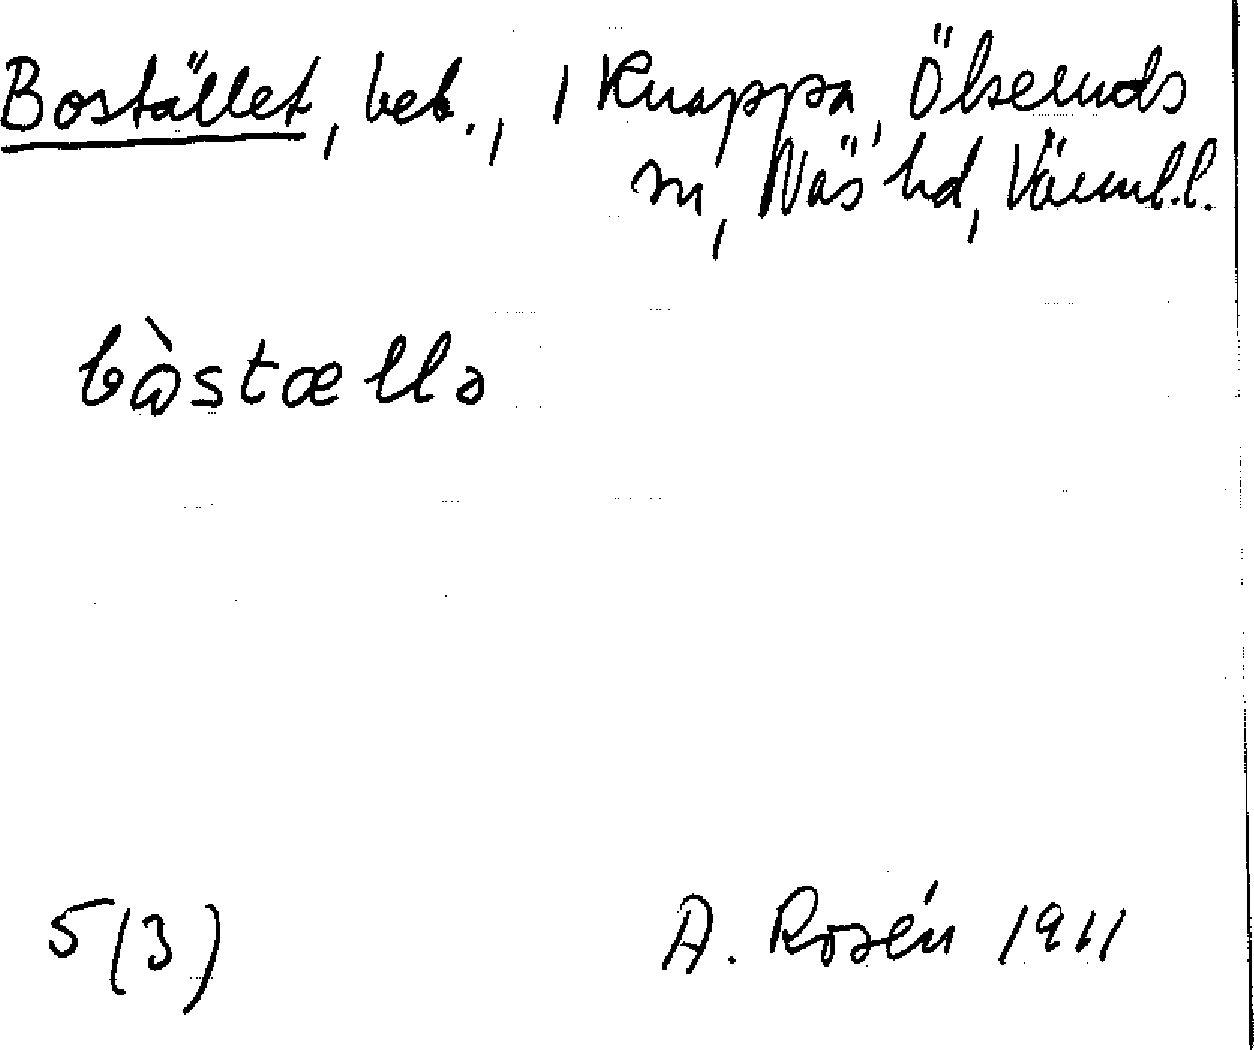 Bostället, beb., i Knappa, Ölseruds
sn, Näs hd, Värml.l.
bòstællə
5(3) A. Rosén 1911